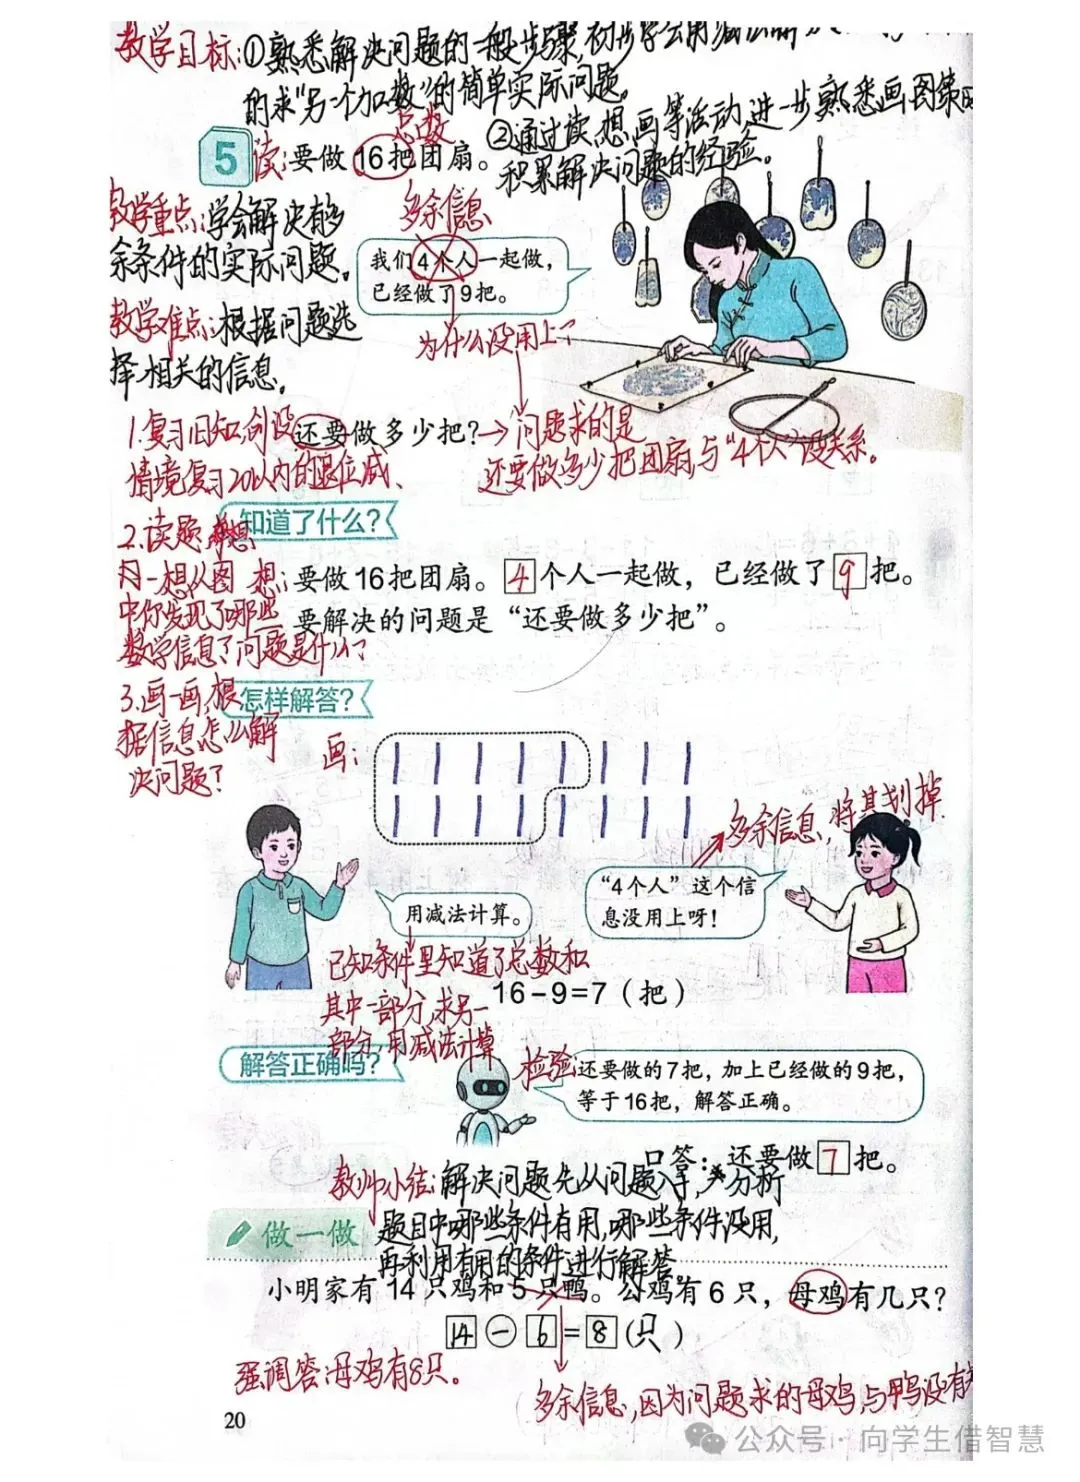 教学目标:①熟悉解决问题的一般步骤,初步学会用减法解
的求“另一个加数”的简单实际问题。
②通过读、想、画等活动,进一步熟悉画图策
积累解决问题的经验。
总数
5 读:要做16把团扇。
教学重点:学会解决有多
余条件的实际问题。
多余信息
我们4个人一起做,
已经做了9把。
教学难点:根据问题选
择相关的信息。
为什么没用上?
1.复习旧知,创设
情境复习20以内的退位减、
还要做多少把?→问题求的是
还要做多少把团扇,与“4个人”没关系。
知道了什么?
2.读题
想:要做16把团扇。4个人一起做,已经做了9把。
要解决的问题是“还要做多少把”。
想一想从图
中你发现了哪些
数学信息?问题是什么?
怎样解答?
3.画一画,根
据信息怎么解
决问题?
画:
多余信息,将其划掉.
用减法计算。
“4个人”这个信
息没用上呀!
已知条件里知道了总数和
其中一部分,求另一
部分,用减法计算
16-9=7(把)
解答正确吗?
检验
还要做的7把,加上已经做的9把,
等于16把,解答正确。
口答:还要做7把。
教师小结:解决问题先从问题入手,分析
题目中哪些条件有用,哪些条件没用,
再利用有用的条件进行解答。
做一做
小明家有14只鸡和5只鸭。公鸡有6只,母鸡有几只?
14-6=8(只)
强调答:母鸡有8只。
多余信息,因为问题求的母鸡,与鸭没有
20
公众号·向学生借智慧